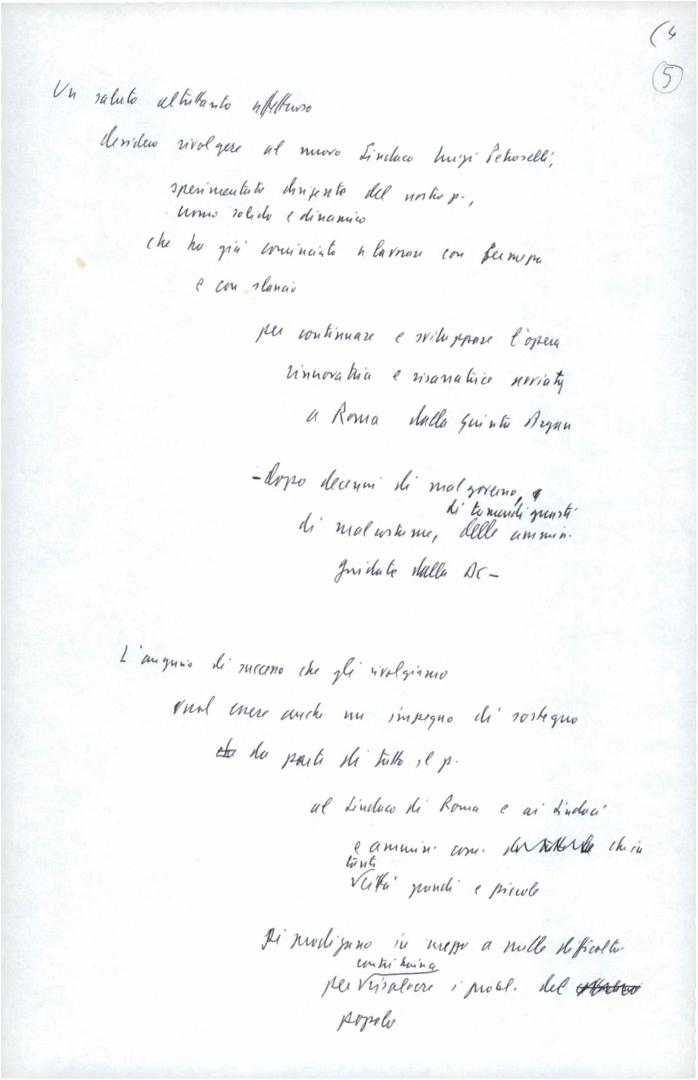 (4
5
Un saluto altrettanto affettuoso
desidero rivolgere al nuovo Sindaco Luigi Petroselli,
sperimentato dirigente del nostro p.,
uomo solido e dinamico
che ha già cominciato a lavorare con
e con slancio
per continuare e sviluppare l'opera
rinnovatrice e risanatrice avviata
a Roma dalla Giunta Argan
-Dopo decenni di malgoverno,
di tremendi guasti
di malcostume, delle ammin.
guidate dalla DC-
L'augurio di successo che gli rivolgiamo
vuol essere anche un impegno di sostegno
da parte di tutto il p.
al Sindaco di Roma e ai Sindaci
e ammin. com. che in
tante
città grandi e piccole
si prodigano in mezzo a mille difficoltà
contribuire
per risolvere i probl. del
popolo